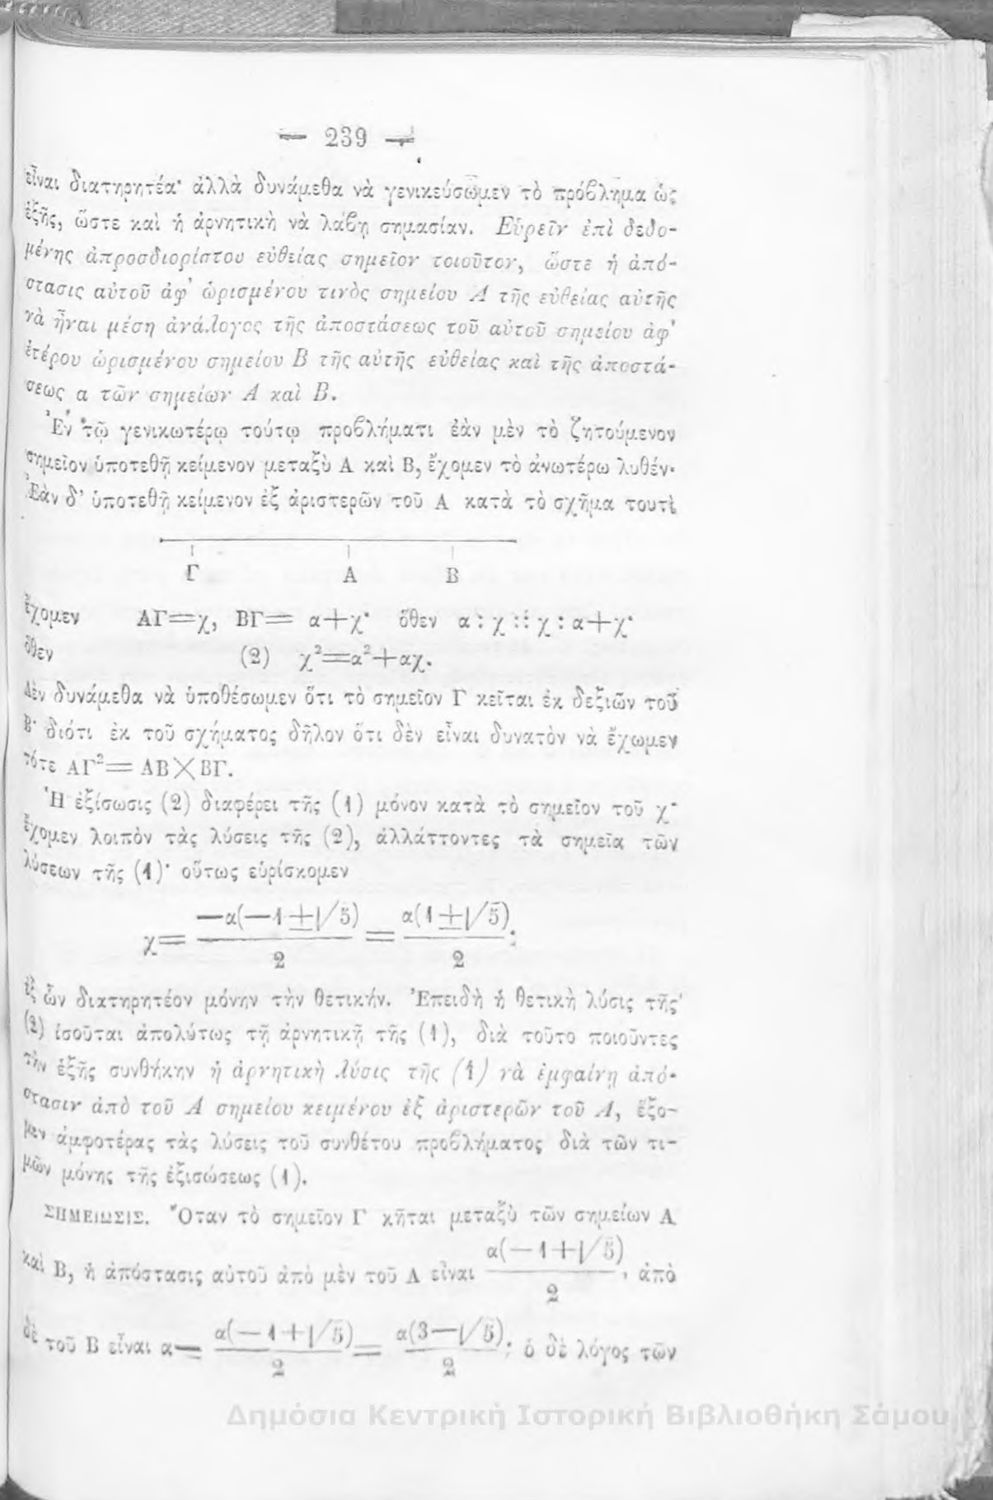 — 239 —
εἶναι διατηρητέα· ἀλλὰ δυνάμεθα νὰ γενικεύσωμεν τὸ πρόβλημα ὡς
ἑξῆς, ὥστε καὶ ἡ ἀρνητικὴ νὰ λάβῃ σημασίαν. Εὑρεῖν ἐπὶ δεδο-
μένης ἀπροσδιορίστου εὐθείας σημεῖον τοιοῦτον, ὥστε ἡ ἀπό-
στασις αὐτοῦ ἀφ' ὡρισμένου τινὸς σημείου Α τῆς εὐθείας αὐτῆς
νὰ ἦναι μέση ἀνάλογος τῆς ἀποστάσεως τοῦ αὐτοῦ σημείου ἀφ'
ἑτέρου ὡρισμένου σημείου Β τῆς αὐτῆς εὐθείας καὶ τῆς ἀποστά-
σεως α τῶν σημείων Α καὶ Β.
Ἐν τῷ γενικωτέρῳ τούτῳ προβλήματι ἐὰν μὲν τὸ ζητούμενον
σημεῖον ὑποτεθῇ κείμενον μεταξὺ Α καὶ Β, ἔχομεν τὸ ἀνωτέρω λυθέν·
Ἐὰν δ' ὑποτεθῇ κείμενον ἐξ ἀριστερῶν τοῦ Α κατὰ τὸ σχῆμα τουτὶ
Γ Α Β
ἔχομεν ΑΓ=χ, ΒΓ= α+χ· ὅθεν α : χ :: χ : α+χ·
ὅθεν (2) χ²=α²+αχ.
Δὲν δυνάμεθα νὰ ὑποθέσωμεν ὅτι τὸ σημεῖον Γ κεῖται ἐκ δεξιῶν τοῦ
Β· διότι ἐκ τοῦ σχήματος δῆλον ὅτι δὲν εἶναι δυνατὸν νὰ ἔχωμεν
τότε ΑΓ²= ΑΒ×ΒΓ.
Ἡ ἐξίσωσις (2) διαφέρει τῆς (1) μόνον κατὰ τὸ σημεῖον τοῦ χ·
ἔχομεν λοιπὸν τὰς λύσεις τῆς (2), ἀλλάττοντες τὰ σημεῖα τῶν
λύσεων τῆς (1)· οὕτως εὑρίσκομεν
χ= —α(—1±√5)/2 = α(1±√5)/2 ·
ἐξ ὧν διατηρητέον μόνην τὴν θετικήν. Ἐπειδὴ ἡ θετικὴ λύσις τῆς
(2) ἰσοῦται ἀπολύτως τῇ ἀρνητικῇ τῆς (1), διὰ τοῦτο ποιοῦντες
τὴν ἑξῆς συνθήκην ἡ ἀρνητικὴ λύσις τῆς (1) νὰ ἐμφαίνῃ ἀπό-
στασιν ἀπὸ τοῦ Α σημείου κειμένου ἐξ ἀριστερῶν τοῦ Α, ἕξο-
μεν ἀμφοτέρας τὰς λύσεις τοῦ συνθέτου προβλήματος διὰ τῶν τι-
μῶν μόνης τῆς ἐξισώσεως (1).
ΣΗΜΕΙΩΣΙΣ. Ὅταν τὸ σημεῖον Γ κῆται μεταξὺ τῶν σημείων Α
καὶ Β, ἡ ἀπόστασις αὐτοῦ ἀπὸ μὲν τοῦ Α εἶναι α(—1+√5)/2, ἀπὸ
δὲ τοῦ Β εἶναι α— α(—1+√5)/2 = α(3—√5)/2 · ὁ δὲ λόγος τῶν
Δημόσια Κεντρική Ιστορική Βιβλιοθήκη Σάμου